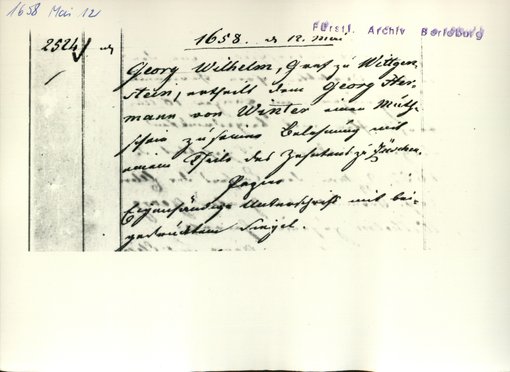 1658 Mai 12
Fürstl. Archiv Berleburg
1658. d. 12. Mai
2524
Georg Wilhelm, Graf zu Wittgen-
stein, ertheilt dem Georg Her-
mann von Winter einen Muth-
schein zu seiner Belehnung mit
einem Theile des Zehntens zu
Papier
Eigenhändige Unterschrift mit bei-
gedrücktem Siegel.